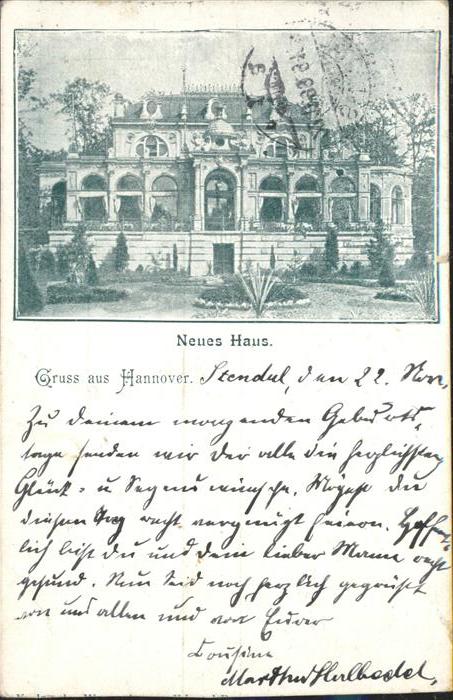 Neues Haus.
Gruss aus Hannover. Stendal, den 22. Nov.
Zu deinem morgenden Geburts-
tage senden wir dir alle die herzlichsten
Glück- u Segenswünsche. Mögest du
diesen Tag recht vergnügt feiern. Hoffent-
lich bist du und dein lieber Mann recht
gesund. Nun Seid noch herzlich gegrüßt
von uns allen und von Eurer
Cousine